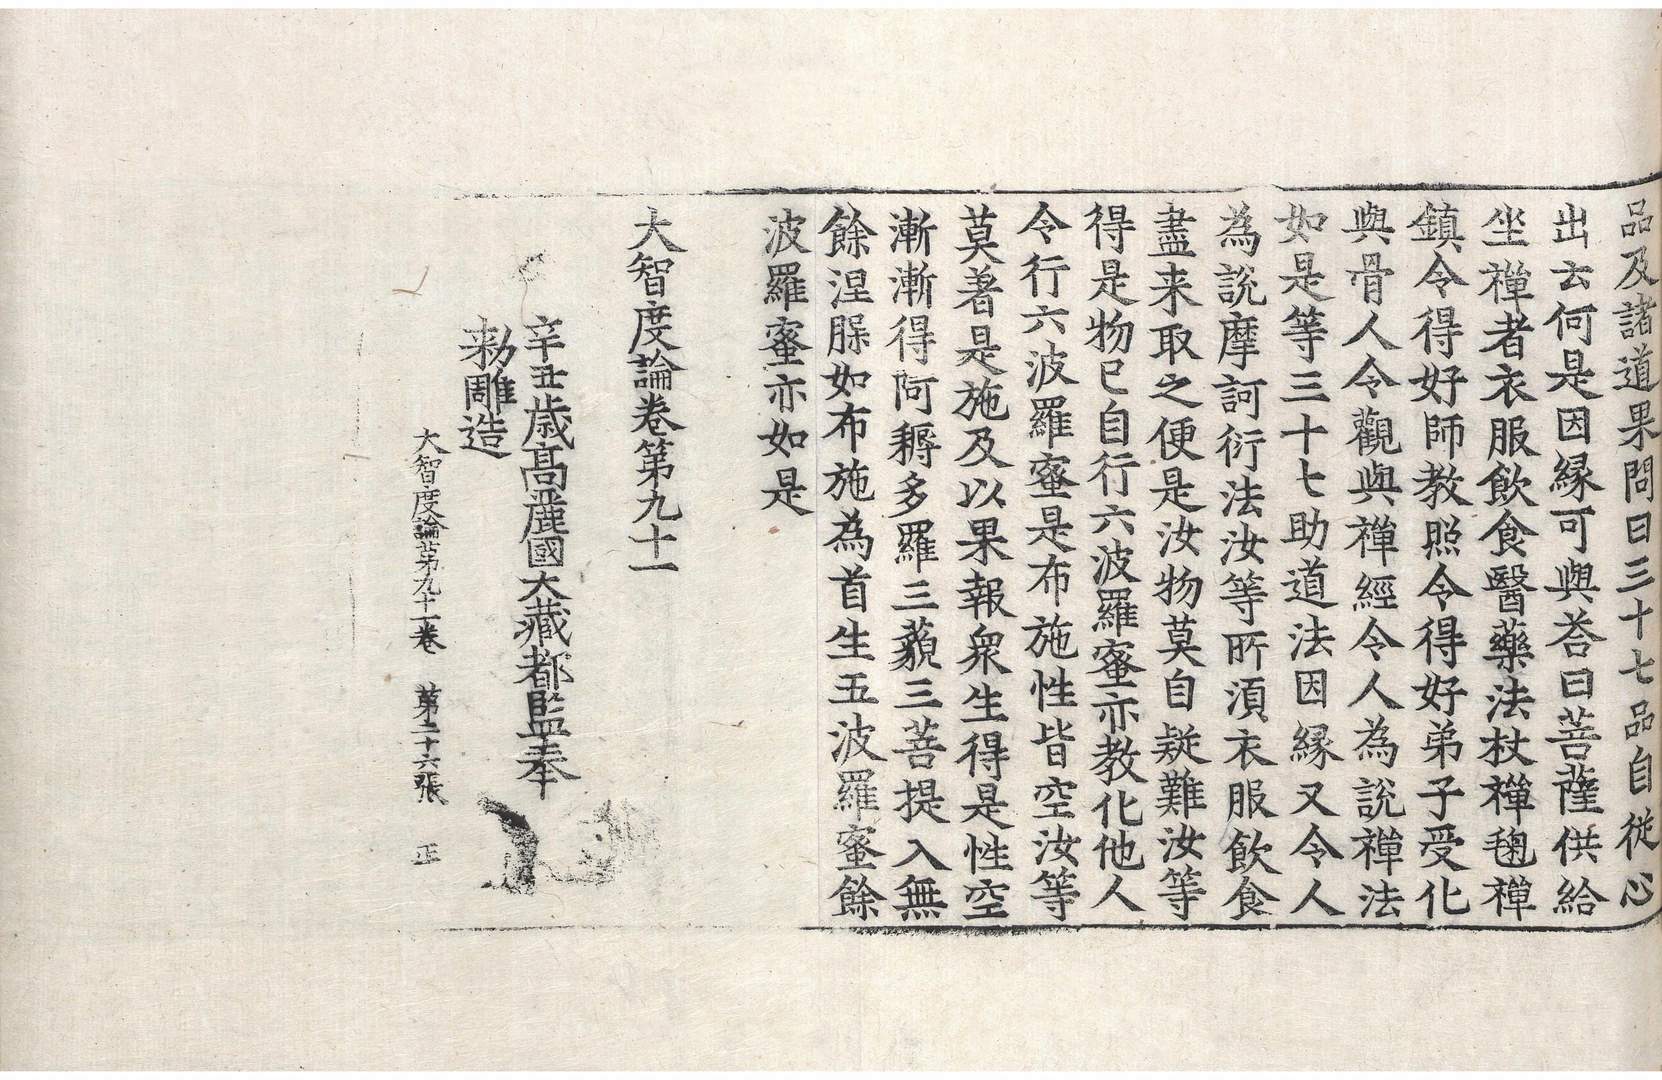 品及諸道果問曰三十七品自從心
出云何是因縁可與荅曰菩薩供給
坐禪者衣服飲食醫藥法杖禪毱禪
鎮令得好師教照令得好弟子受化
與骨人令觀與禪經令人為說禪法
如是等三十七助道法因縁又令人
為說摩訶衍法汝等所湏衣服飲食
盡来取之便是汝物莫自疑難汝等
得是物已自行六波羅蜜亦教化他人
令行六波羅蜜是布施性皆空汝等
莫著是施及以果報衆生得是性空
漸漸得阿耨多羅三藐三菩提入無
餘涅槃如布施為首生五波羅蜜餘
波羅蜜亦如是
大智度論卷第九十一
辛丑歳髙麗國大藏都監奉
勑雕造
大智度論第九十一卷 第二十六張 正